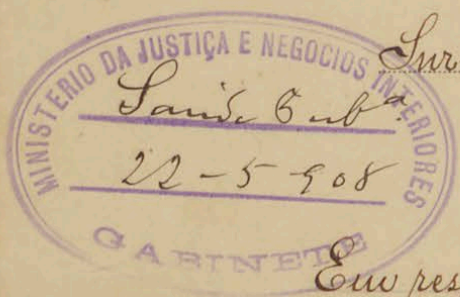 MINISTERIO DA JUSTIÇA E NEGOCIOS INTERIORES
Saúde Pub^a
22-5-908
GABINETE
Em res